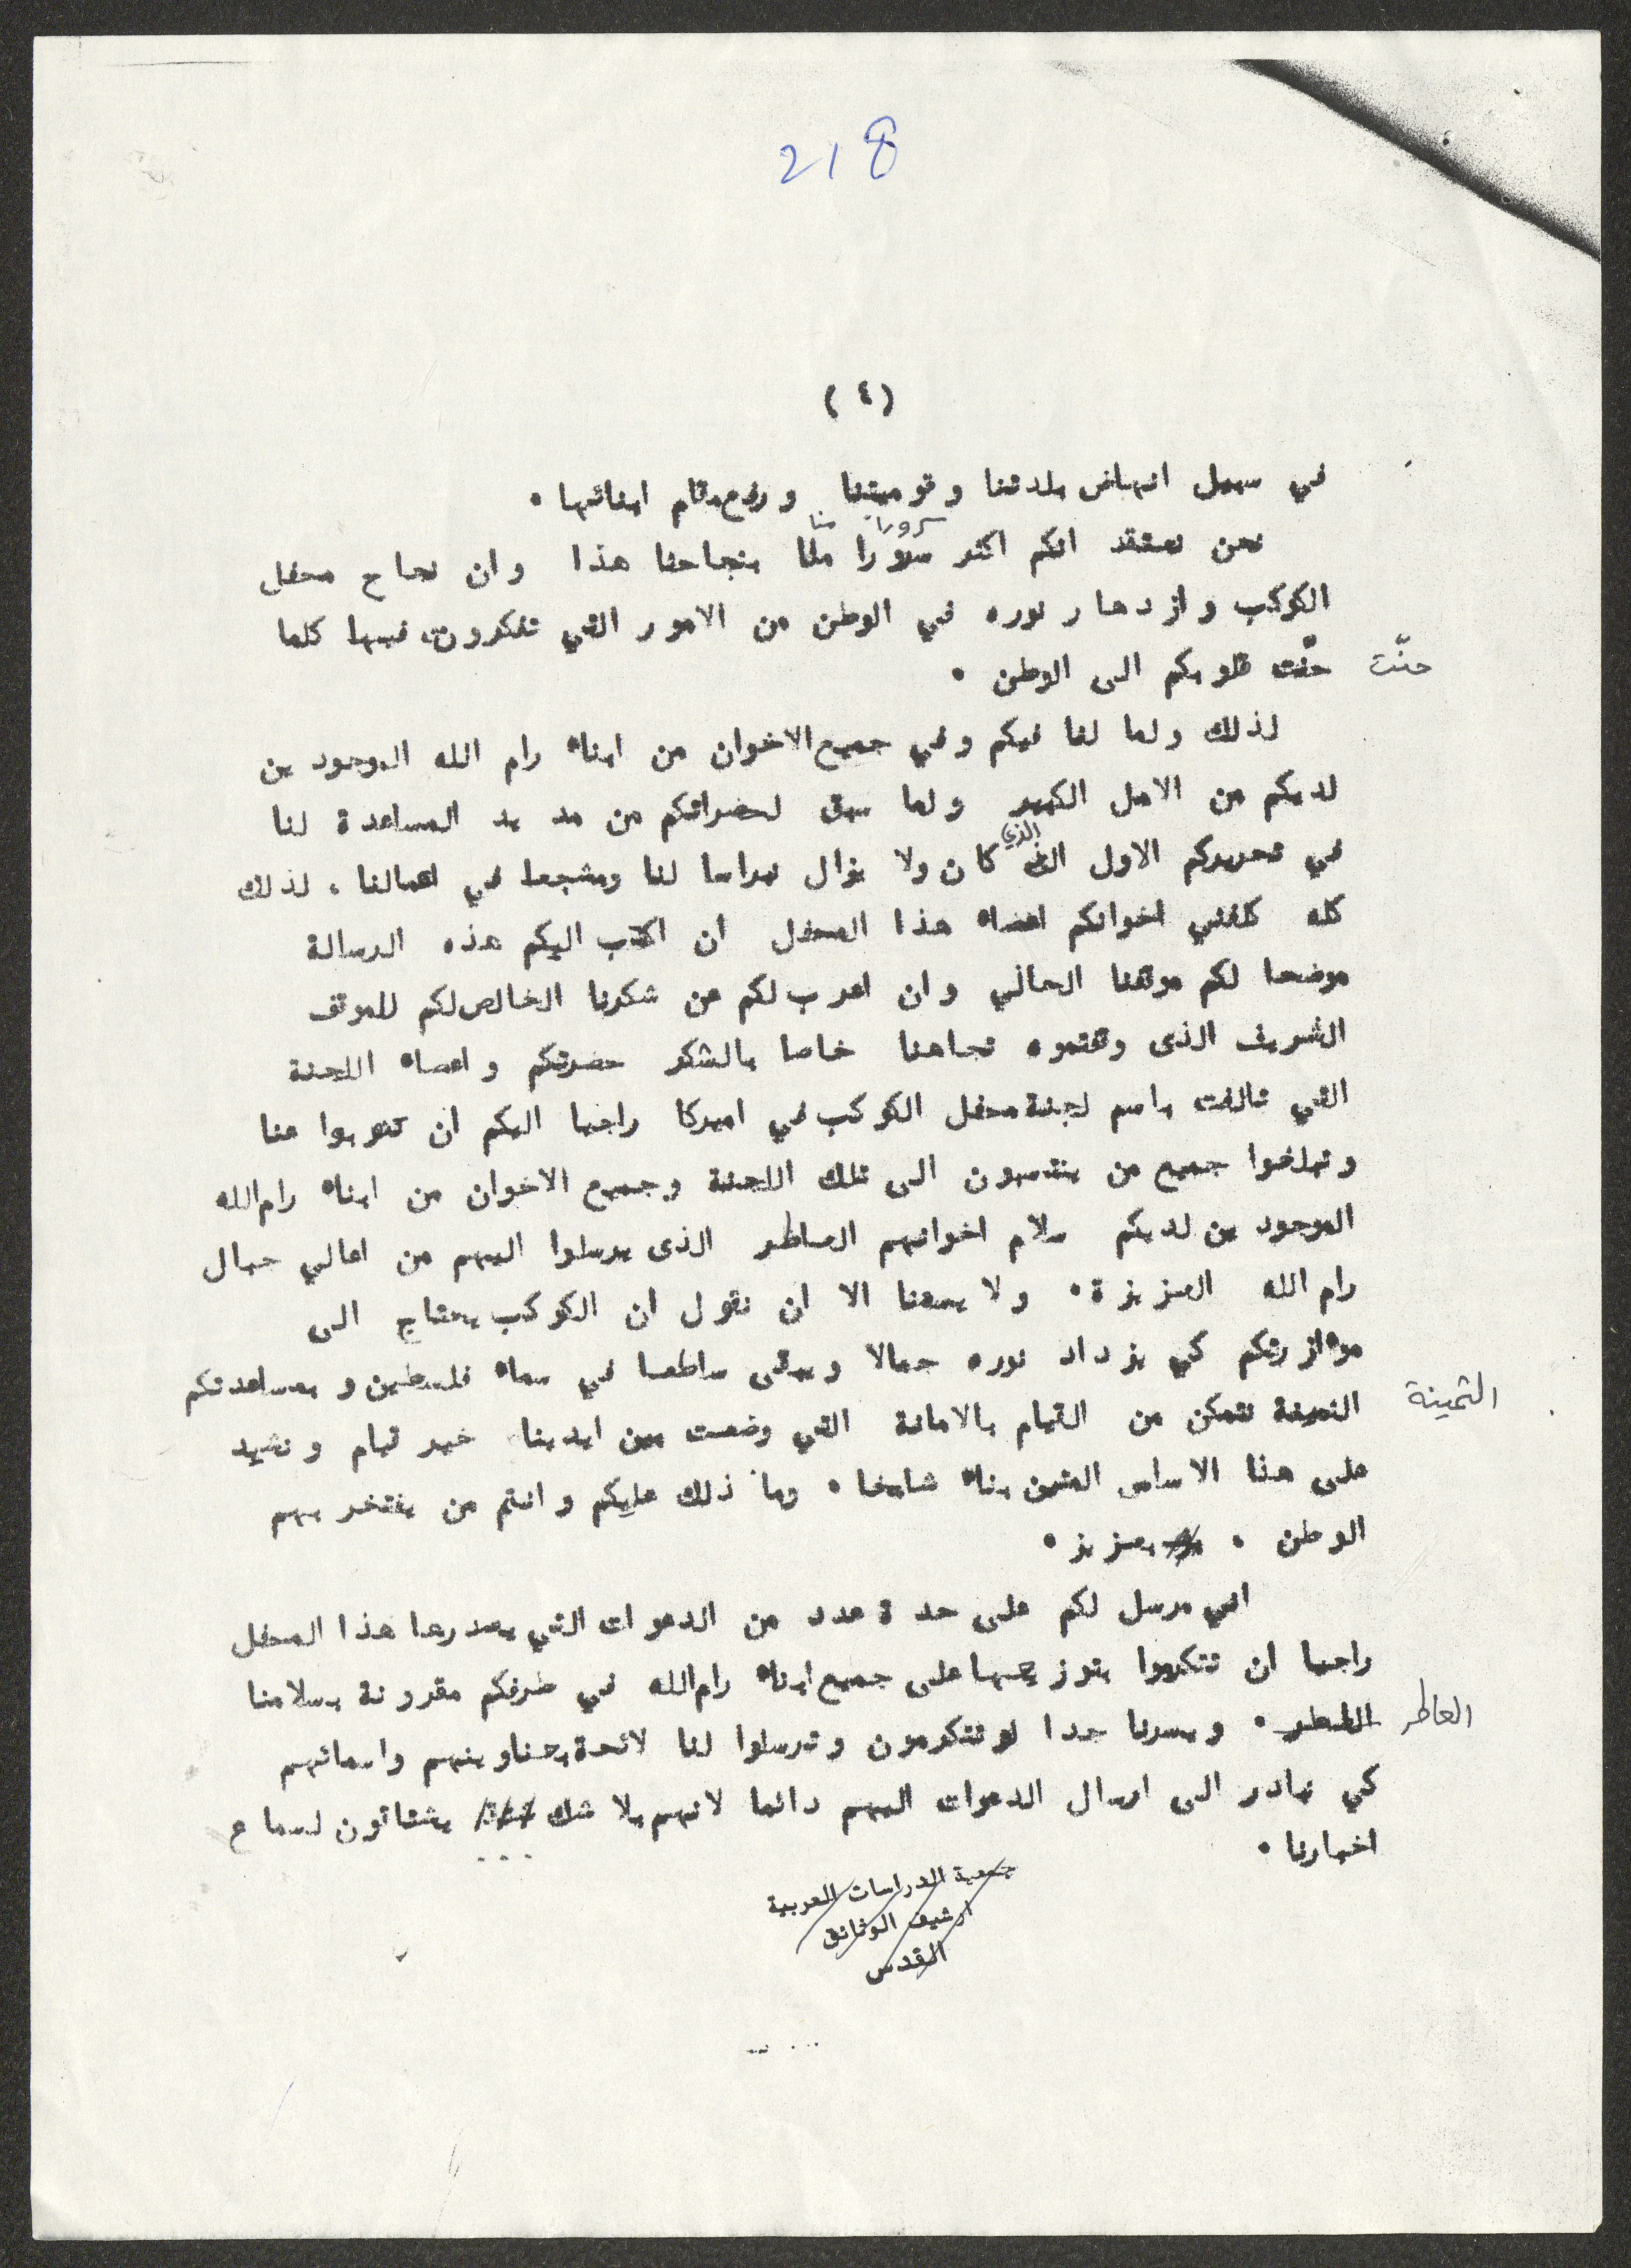 218
(٤)
في سبيل انهاض بلدتنا وقوميتنا ورفع مقام ابنائها ٠
سرورا منا
نحن نعتقد انكم اكثر سرورا منا بنجاحنا هذا وان نجاح محفل
الكوكب وازدهار نوره في الوطن من الامور التي تفكرون فيها كلما
حنّت حنّت قلوبكم الى الوطن ٠
لذلك ولما لنا فيكم وفي جميع الاخوان من ابناء رام الله الموجودين
لديكم من الامل الكبير ولما سبق لحضراتكم من مد يد المساعدة لنا
في تحريركم الاول الذي كان ولا يزال نبراسا لنا ومشجعا في اعمالنا ، لذلك
كله كلفني اخوانكم اعضاء هذا المحفل ان اكتب اليكم هذه الرسالة
موضحا لكم موقفنا الحالي وان اعرب لكم عن شكرنا الخالص لكم للموقف
الشريف الذى وقفتموه تجاهنا خاصا بالشكر حضرتكم واعضاء اللجنة
التي تالفت باسم لجنة محفل الكوكب في اميركا راجيا اليكم ان تنوبوا عنا
وتبلغوا جميع من ينتسبون الى تلك اللجنة وجميع الاخوان من ابناء رام الله
الموجودين لديكم سلام اخوانهم العاطر الذى يرسلوا اليهم من اعالي جبال
رام الله العزيزة ٠ ولا يسعنا الا ان نقول ان الكوكب يحتاج الى
موءازرتكم كي يزداد نوره جمالا ويبقى ساطعا في سماء فلسطين وبمساعدتكم
الثمينة الثمينة نتمكن من القيام بالامانة التي وضعت بين ايدينا خير قيام ونشيد
على هذا الاساس المتين بناء شامخا ٠ وما ذلك عليكم وانتم من يفتخر بهم
الوطن ٠ بعزيز ٠
اني مرسل لكم على حدة عدد من الدعوات التي يصدرها هذا المحفل
راجيا ان تتكرموا بتوزيعها على جميع ابناء رام الله في طرفكم مقرونة بسلامنا
العاطر العاطر ٠ ويسرنا جدا لو تتكرمون وترسلوا لنا لائحة بعناوينهم واسمائهم
كي نبادر الى ارسال الدعوات اليهم دائما لانهم بلا شك يشتاقون لسماع
اخبارنا ٠
جمعية الدراسات العربية
ارشيف الوثائق
القدس